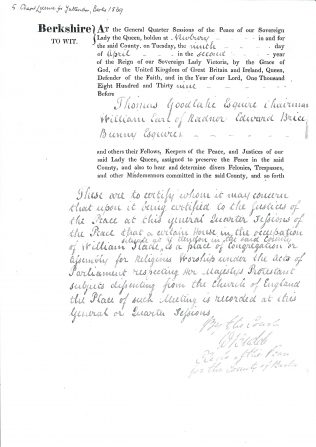 5. Chapel Licence for Yattendon, Berks 1839
Berkshire
TO WIT.
AT the General Quarter Sessions of the Peace of our Sovereign
Lady the Queen, holden at Newbury - in and for
the said County, on Tuesday, the ninth - day
of April - in the second - year
of the Reign of our Sovereign Lady Victoria, by the Grace of
God, of the United Kingdom of Great Britain and Ireland, Queen,
Defender of the Faith, and in the Year of our Lord, One Thousand
Eight Hundred and Thirty nine - - - -
Before
Thomas Goodlake Esquire Chairman
William Earl of Radnor Edward Brice
Bunny Esquires - - - - -
and others their Fellows, Keepers of the Peace, and Justices of our
said Lady the Queen, assigned to preserve the Peace in the said
County, and also to hear and determine divers Felonies, Trespasses,
and other Misdemeanors committed in the said County, and so forth
These are to certify whom it may concern
that upon it being certified to the Justices of
the Peace at this general Quarter Sessions of
the Peace that a certain House in the occupation
of William Slade, situate at in the said County
is a place of Congregation or
Assembly for Religious Worship under the Acts of
Parliament respecting Her Majestys Protestant
subjects dissenting from the Church of England
the Place of such Meeting is recorded at this
General or Quarter Sessions
By the Court
of the Peace
for the County of Berks